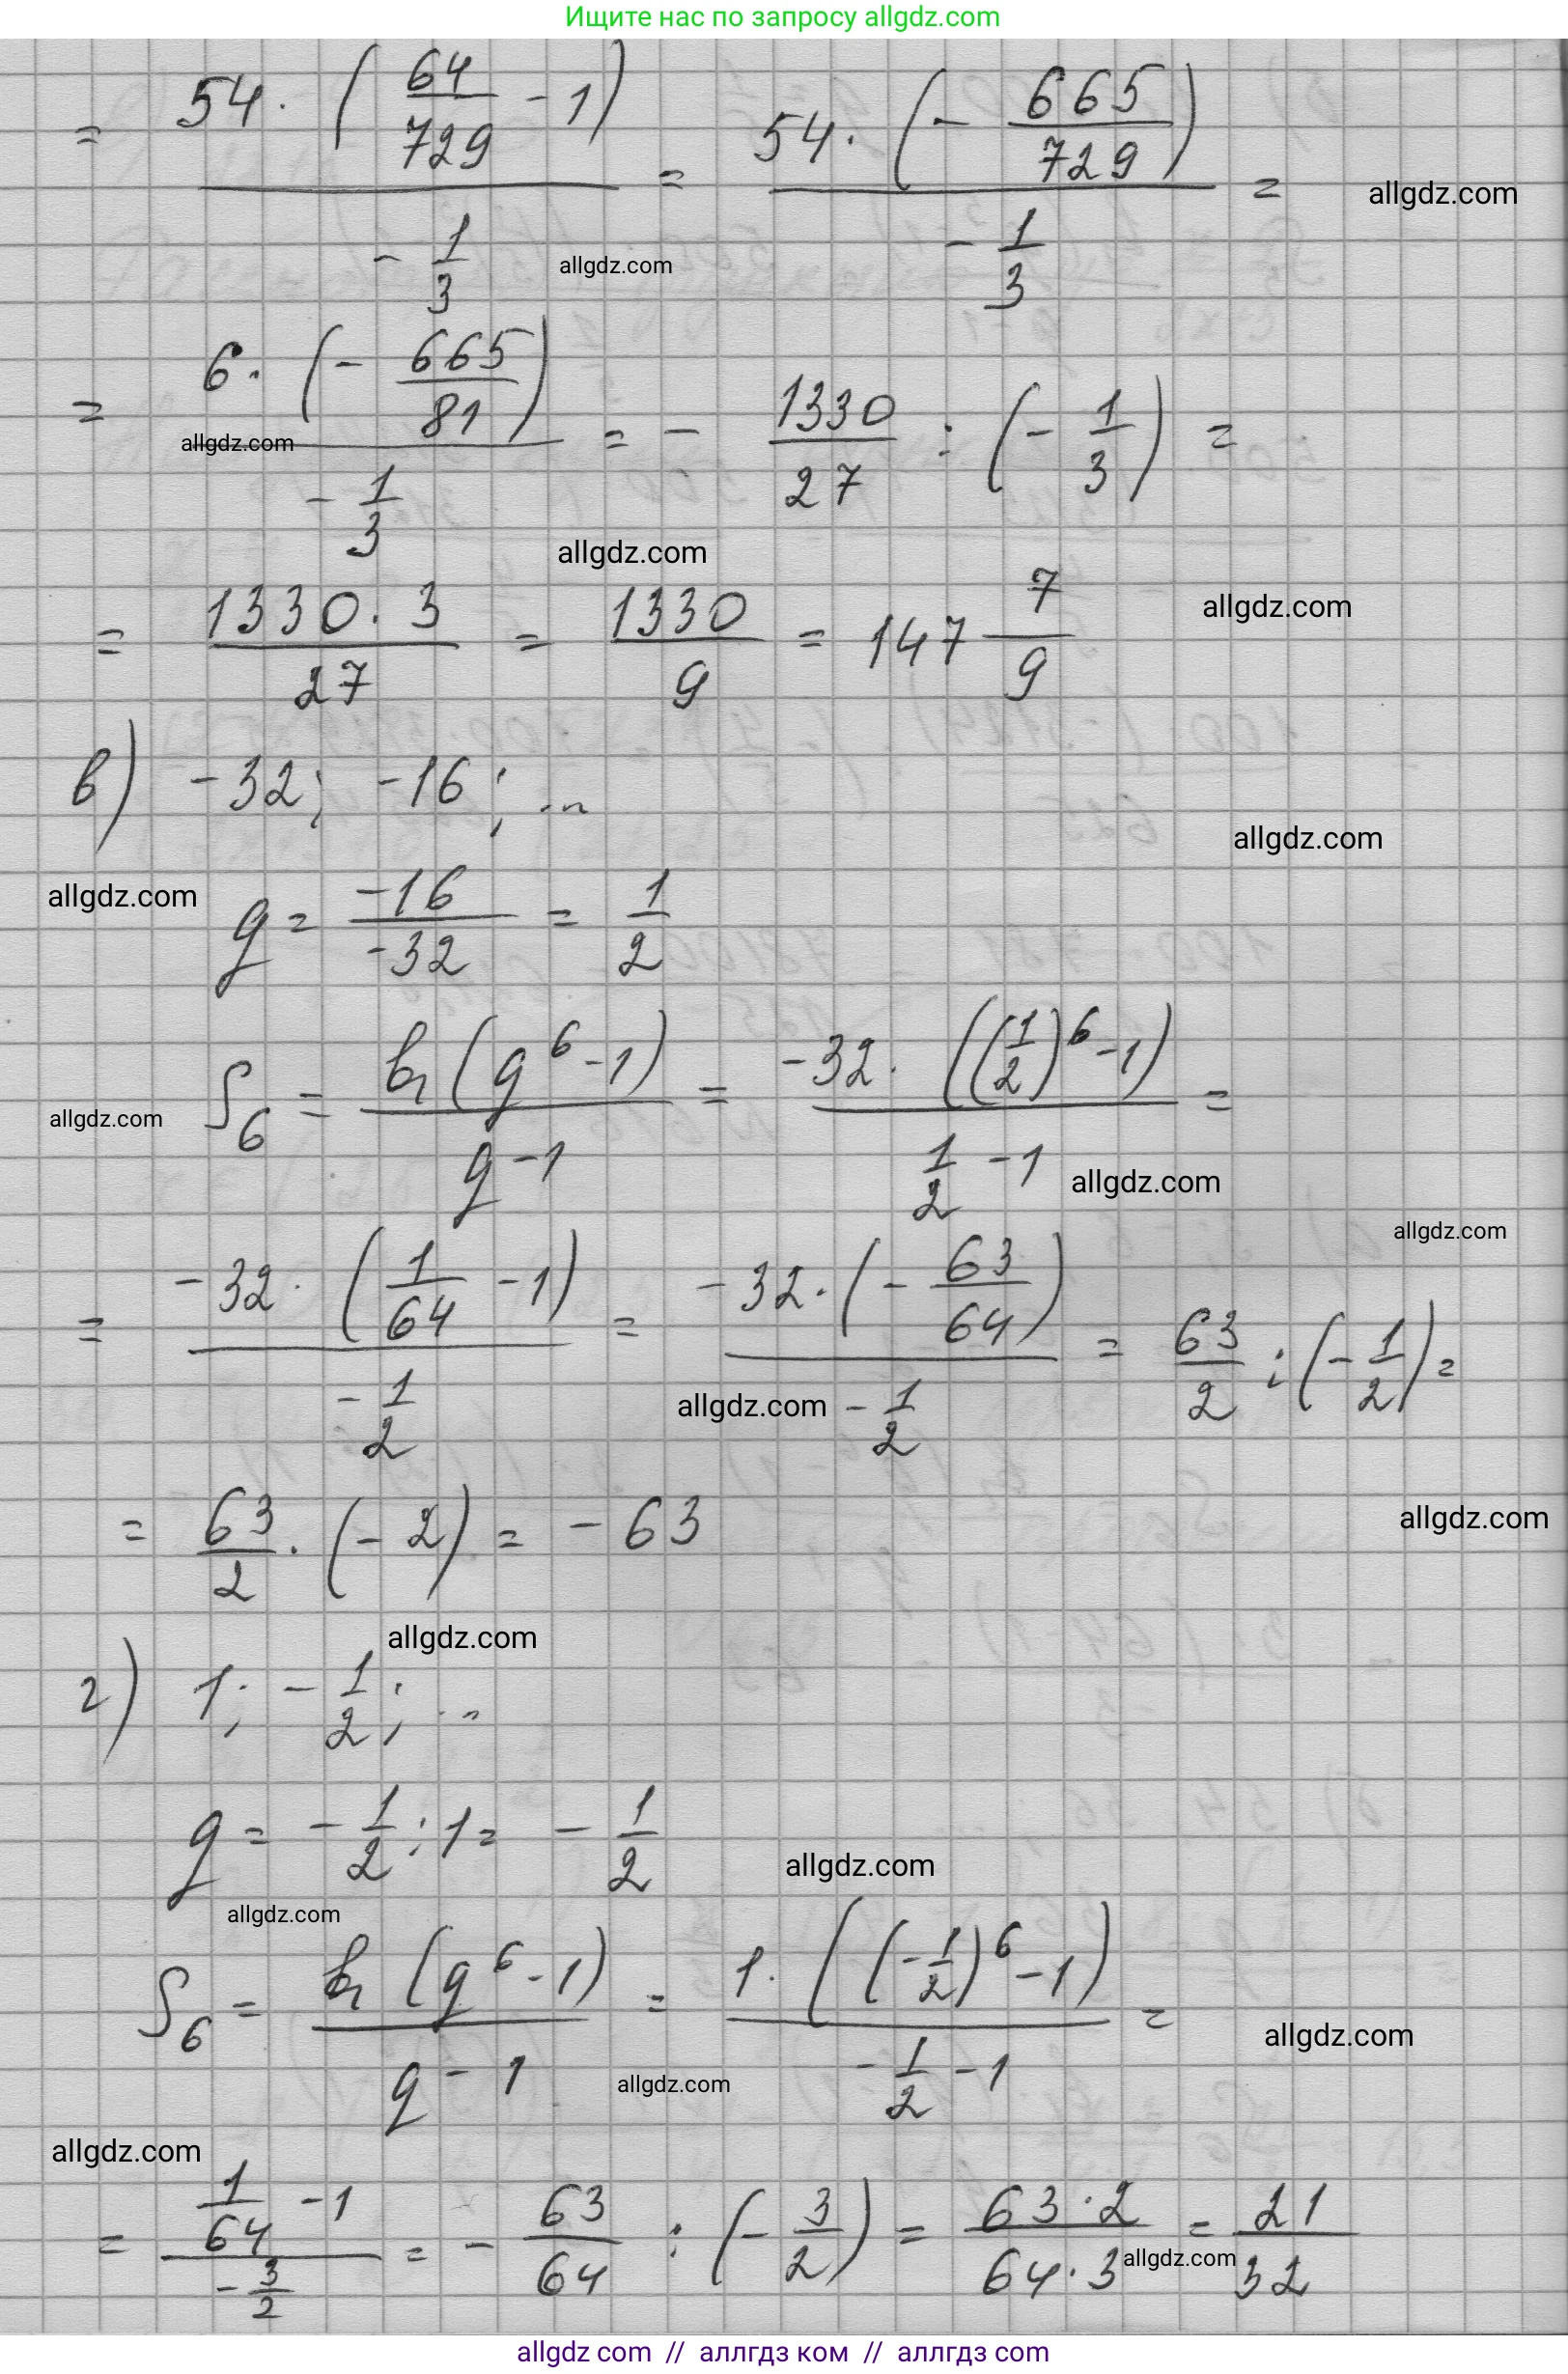 Ищите нас по запросу allgdz.com
= (54 · (64/729 - 1)) / (-1/3) = (54 · (-665/729)) / (-1/3) =
allgdz.com
allgdz.com
= (6 · (-665/81)) / (-1/3) = -1330/27 : (-1/3) =
allgdz.com
allgdz.com
= (1330 · 3)/27 = 1330/9 = 147 7/9
allgdz.com
в) -32; -16; ...
allgdz.com
allgdz.com
q = -16/-32 = 1/2
S₆ = b₁(q⁶ - 1)/(q - 1) = (-32 · ((1/2)⁶ - 1)) / (1/2 - 1) =
allgdz.com
allgdz.com
allgdz.com
= (-32 · (1/64 - 1)) / (-1/2) = (-32 · (-63/64)) / (-1/2) = 63/2 : (-1/2) =
allgdz.com
= 63/2 · (-2) = -63
allgdz.com
allgdz.com
г) 1; -1/2; ...
q = -1/2 : 1 = -1/2
allgdz.com
allgdz.com
S₆ = b₁(q⁶ - 1)/(q - 1) = (1 · ((-1/2)⁶ - 1)) / (-1/2 - 1) =
allgdz.com
allgdz.com
allgdz.com
= (1/64 - 1)/(-3/2) = -63/64 : (-3/2) = (63 · 2)/(64 · 3) = 21/32
allgdz.com
allgdz com // аллгдз ком // аллгдз com